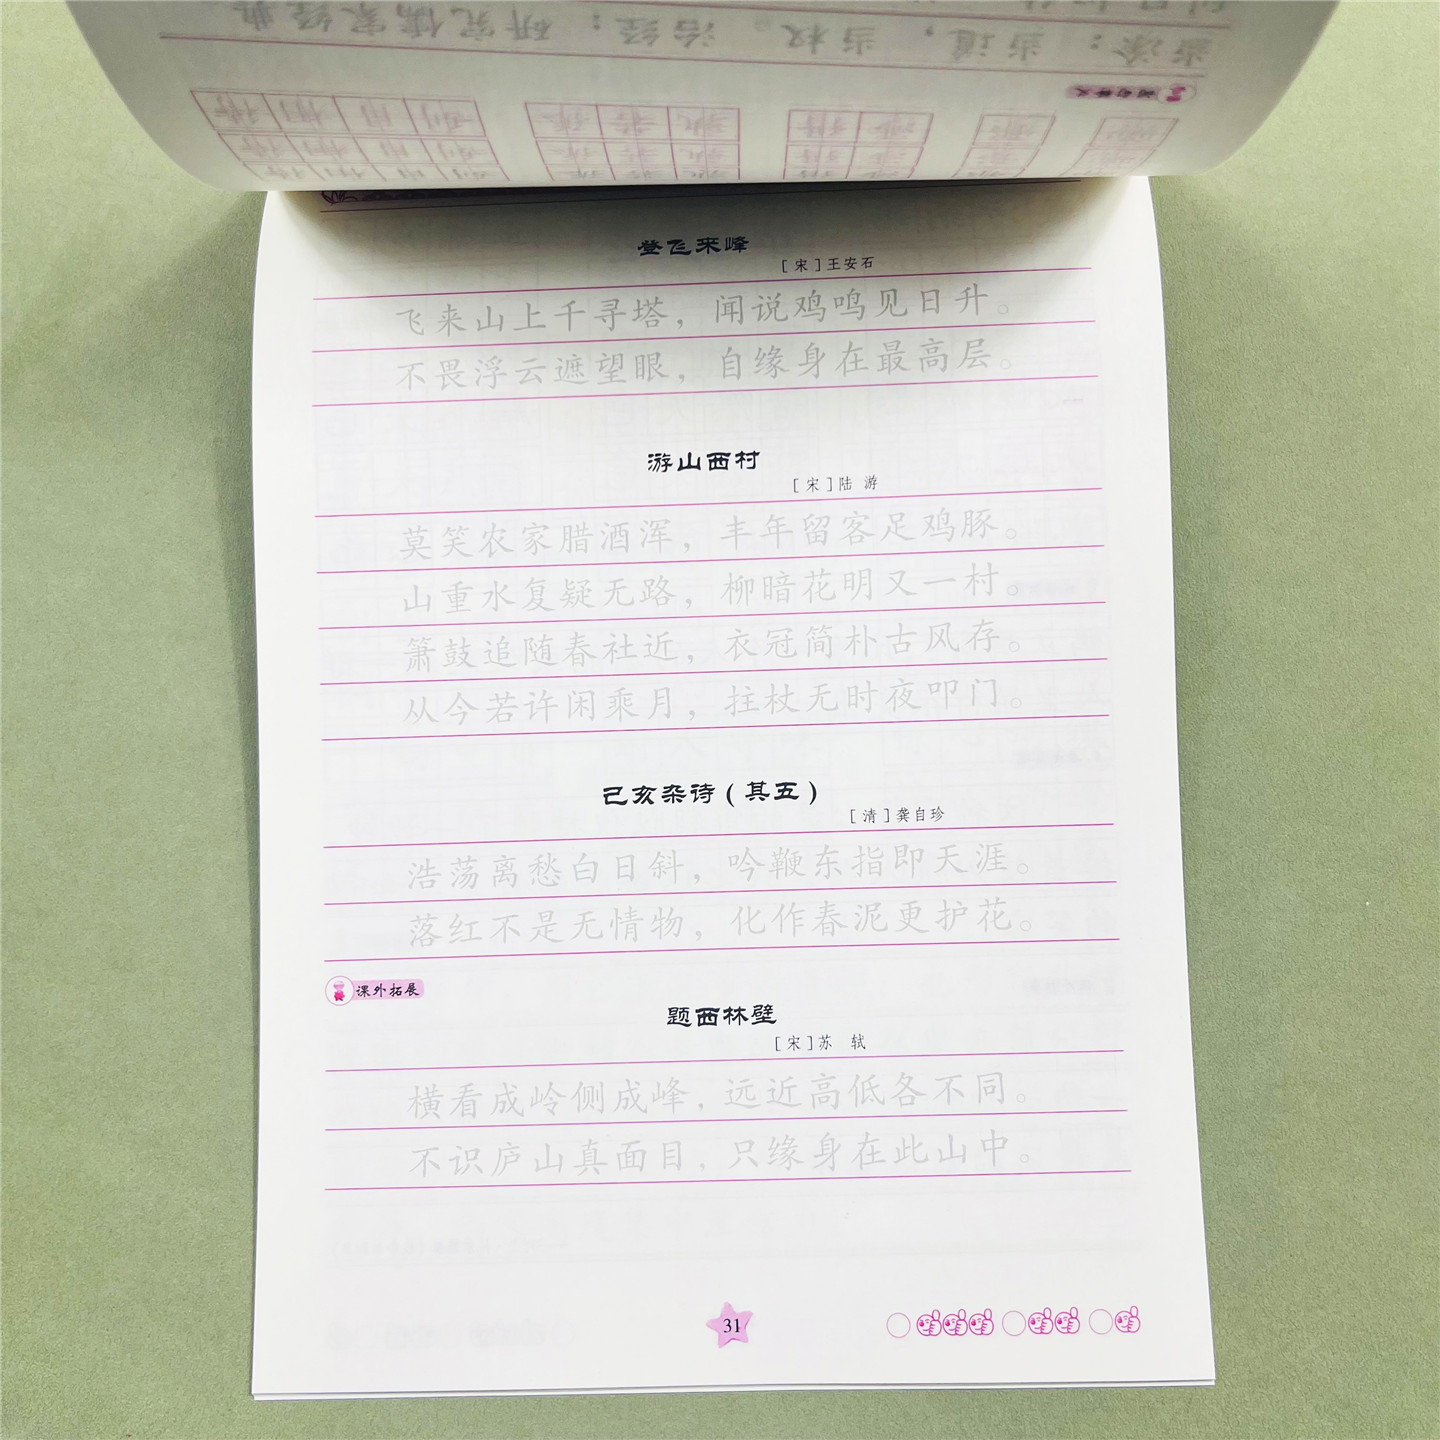 登飞来峰
[宋]王安石
飞来山上千寻塔，闻说鸡鸣见日升。
不畏浮云遮望眼，自缘身在最高层。
游山西村
[宋]陆 游
莫笑农家腊酒浑，丰年留客足鸡豚。
山重水复疑无路，柳暗花明又一村。
箫鼓追随春社近，衣冠简朴古风存。
从今若许闲乘月，拄杖无时夜叩门。
己亥杂诗(其五)
[清]龚自珍
浩荡离愁白日斜，吟鞭东指即天涯。
落红不是无情物，化作春泥更护花。
课外拓展
题西林壁
[宋]苏 轼
横看成岭侧成峰，远近高低各不同。
不识庐山真面目，只缘身在此山中。
31